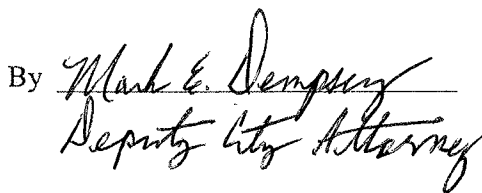 By Mark E. Dempsey
Deputy City Attorney